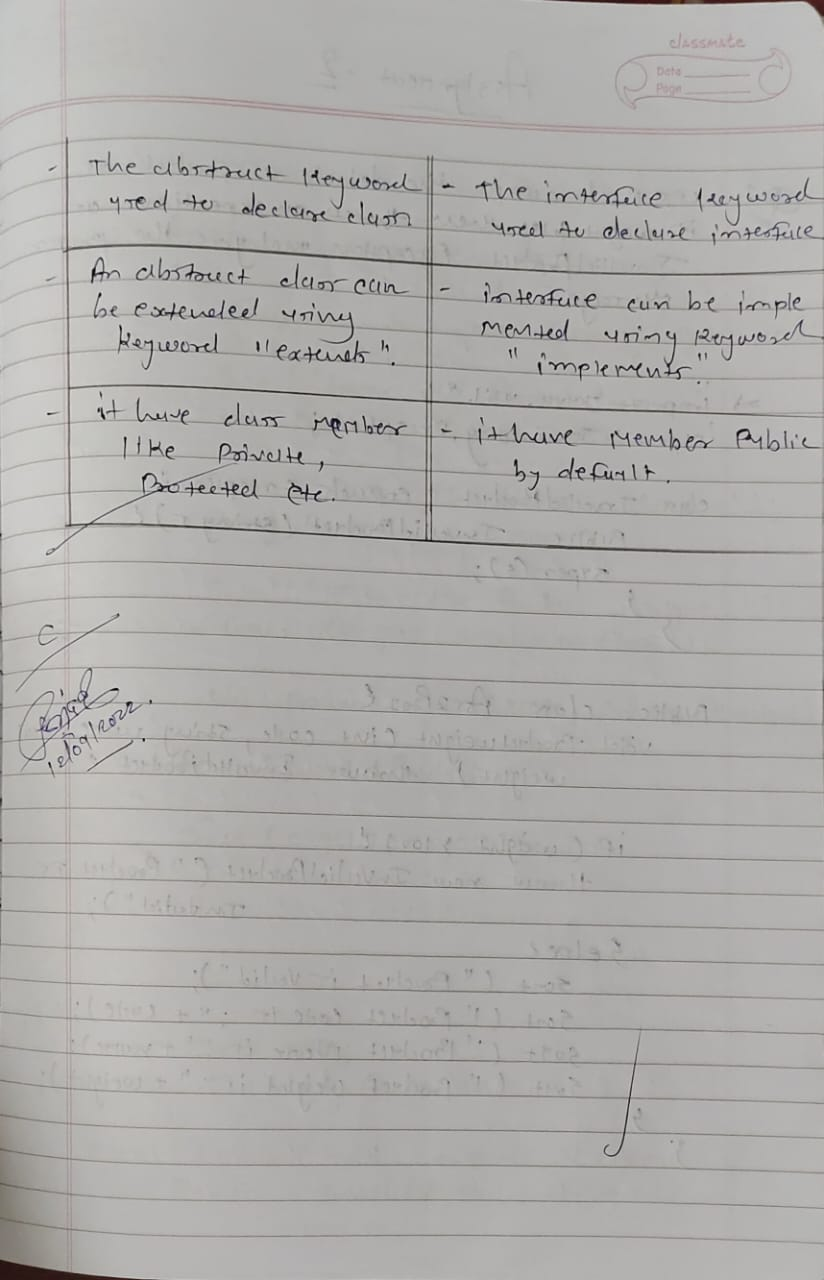 classmate
Date
Page
- The abstruct keyword
used to declare class
- The interface keyword
used to declare interface
- An abstruct class can
be extended using
keyword "extends".
- interface can be imple
mented using keyword
"implements."
- it have class member
like Private,
Protected etc.
- it have member Public
by default.
C
12/09/2022